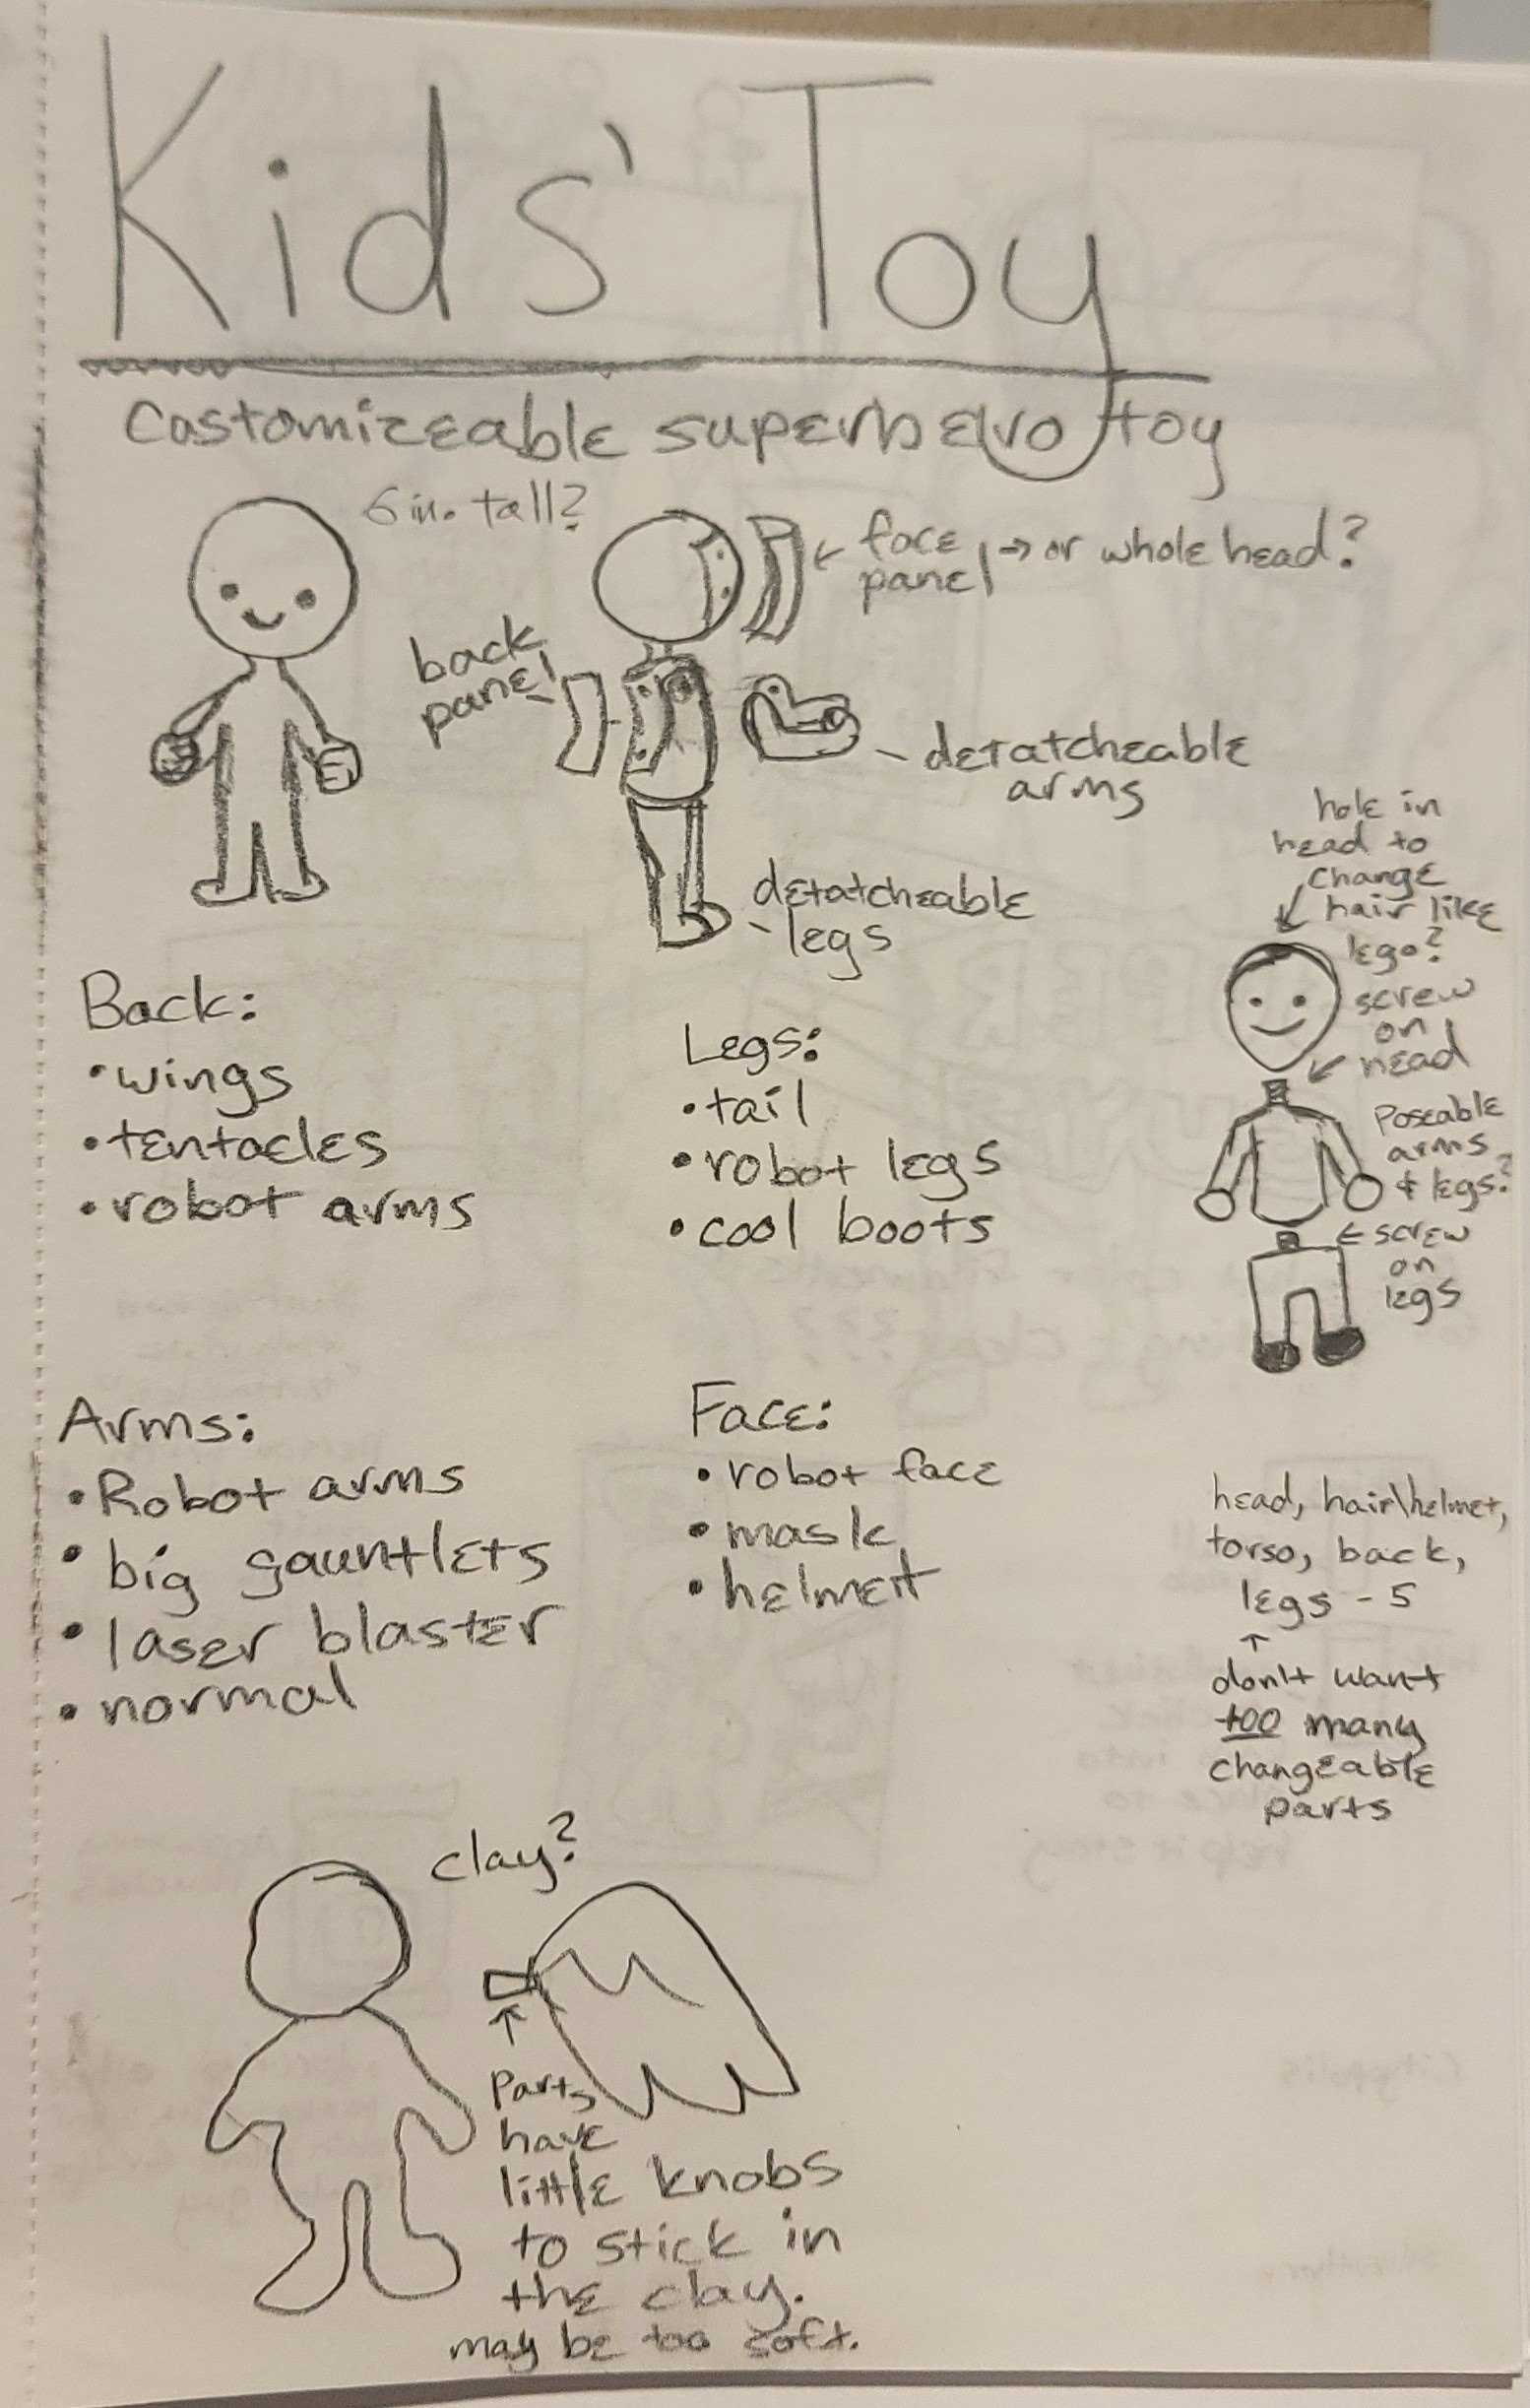 Kids' Toy
Costomizeable superhero toy
6 in. tall?
face
panel → or whole head?
back
panel
detatcheable
arms
detatcheable
legs
hole in
head to
change
hair like
lego?
screw
on
head
Poseable
arms
& legs?
screw
on
legs
Back:
• wings
• tentacles
• robot arms
Legs:
• tail
• robot legs
• cool boots
Arms:
• Robot arms
• big gauntlets
• laser blaster
• normal
Face:
• robot face
• mask
• helmet
head, hair\helmet,
torso, back,
legs - 5
↑
don't want
too many
changeable
parts
clay?
Parts
have
little knobs
to stick in
the clay.
may be too soft.